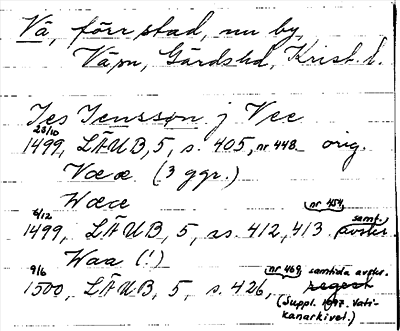 Vä, förr stad, nu by,
Vä sn, Gärds hd, Krist. l.
Jes Jensson j Vee
23/10
1499, LÄUB, 5, s. 405, nr 448. orig.
Væ æ (3 ggr.)
Wæe
nr 454, samt.
6/12
1499, LÄUB, 5, ss. 412, 413. avskr.
Waa (!)
9/6 nr 469, samtida avskr.
1500, LÄUB, 5, s. 426, regest
(Suppl. 1947. Vati-
kanarkivet.)